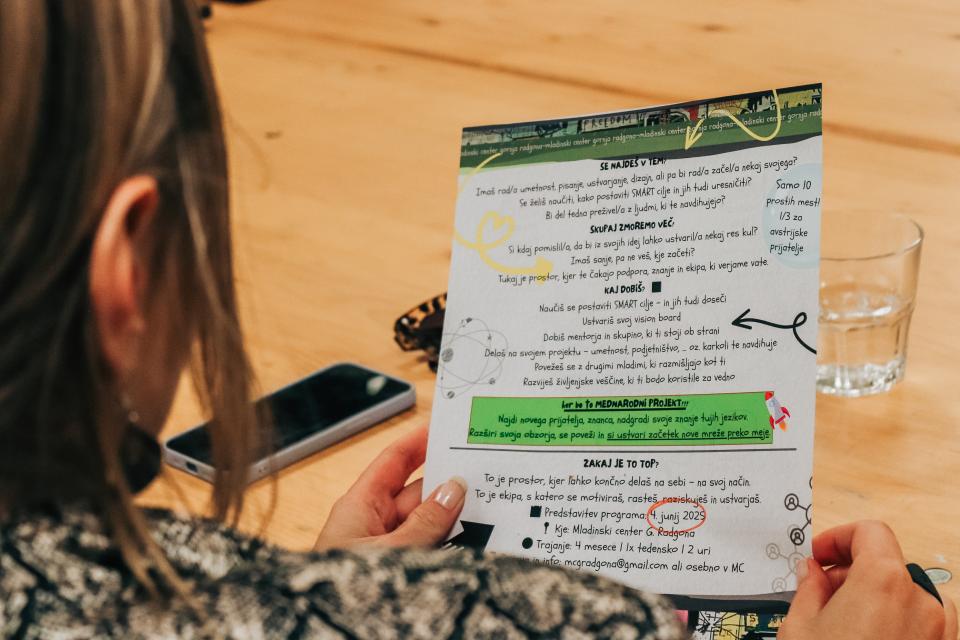 FREEDOM
mladinski center gornja radgona-mladinski center gornja radgona-mladinski center gornja radgona-mladinski center gornja radg
SE NAJDEŠ V TEM?
Imaš rad/a umetnost, pisanje, ustvarjanje, dizajn, ali pa bi rad/a začel/a nekaj svojega?
Se želiš naučiti, kako postaviti SMART cilje in jih tudi uresničiti?
Bi del tedna preživel/a z ljudmi, ki te navdihujejo?
Samo 10
prostih mest!
1/3 za
avstrijske
prijatelje
SKUPAJ ZMOREMO VEČ!
Si kdaj pomislil/a, da bi iz svojih idej lahko ustvaril/a nekaj res kul?
Imaš sanje, pa ne veš, kje začeti?
Tukaj je prostor, kjer te čakajo podpora, znanje in ekipa, ki verjame vate.
KAJ DOBIŠ?
Naučiš se postaviti SMART cilje – in jih tudi doseči
Ustvariš svoj vision board
Dobiš mentorja in skupino, ki ti stoji ob strani
Delaš na svojem projektu – umetnost, podjetništvo, ... oz. karkoli te navdihuje
Povežeš se z drugimi mladimi, ki razmišljajo kot ti
Razviješ življenjske veščine, ki ti bodo koristile za vedno
ker bo to MEDNARODNI PROJEKT!!!
Najdi novega prijatelja, znanca, nadgradi svoje znanje tujih jezikov.
Razširi svoja obzorja, se poveži in si ustvari začetek nove mreže preko meje
ZAKAJ JE TO TOP?
To je prostor, kjer lahko končno delaš na sebi – na svoj način.
To je ekipa, s katero se motiviraš, rasteš, raziskuješ in ustvarjaš.
Predstavitev programa: 4. junij 2025
Kje: Mladinski center G. Radgona
Trajanje: 4 mesece | 1x tedensko | 2 uri
in info: mcgradgona@gmail.com ali osebno v MC